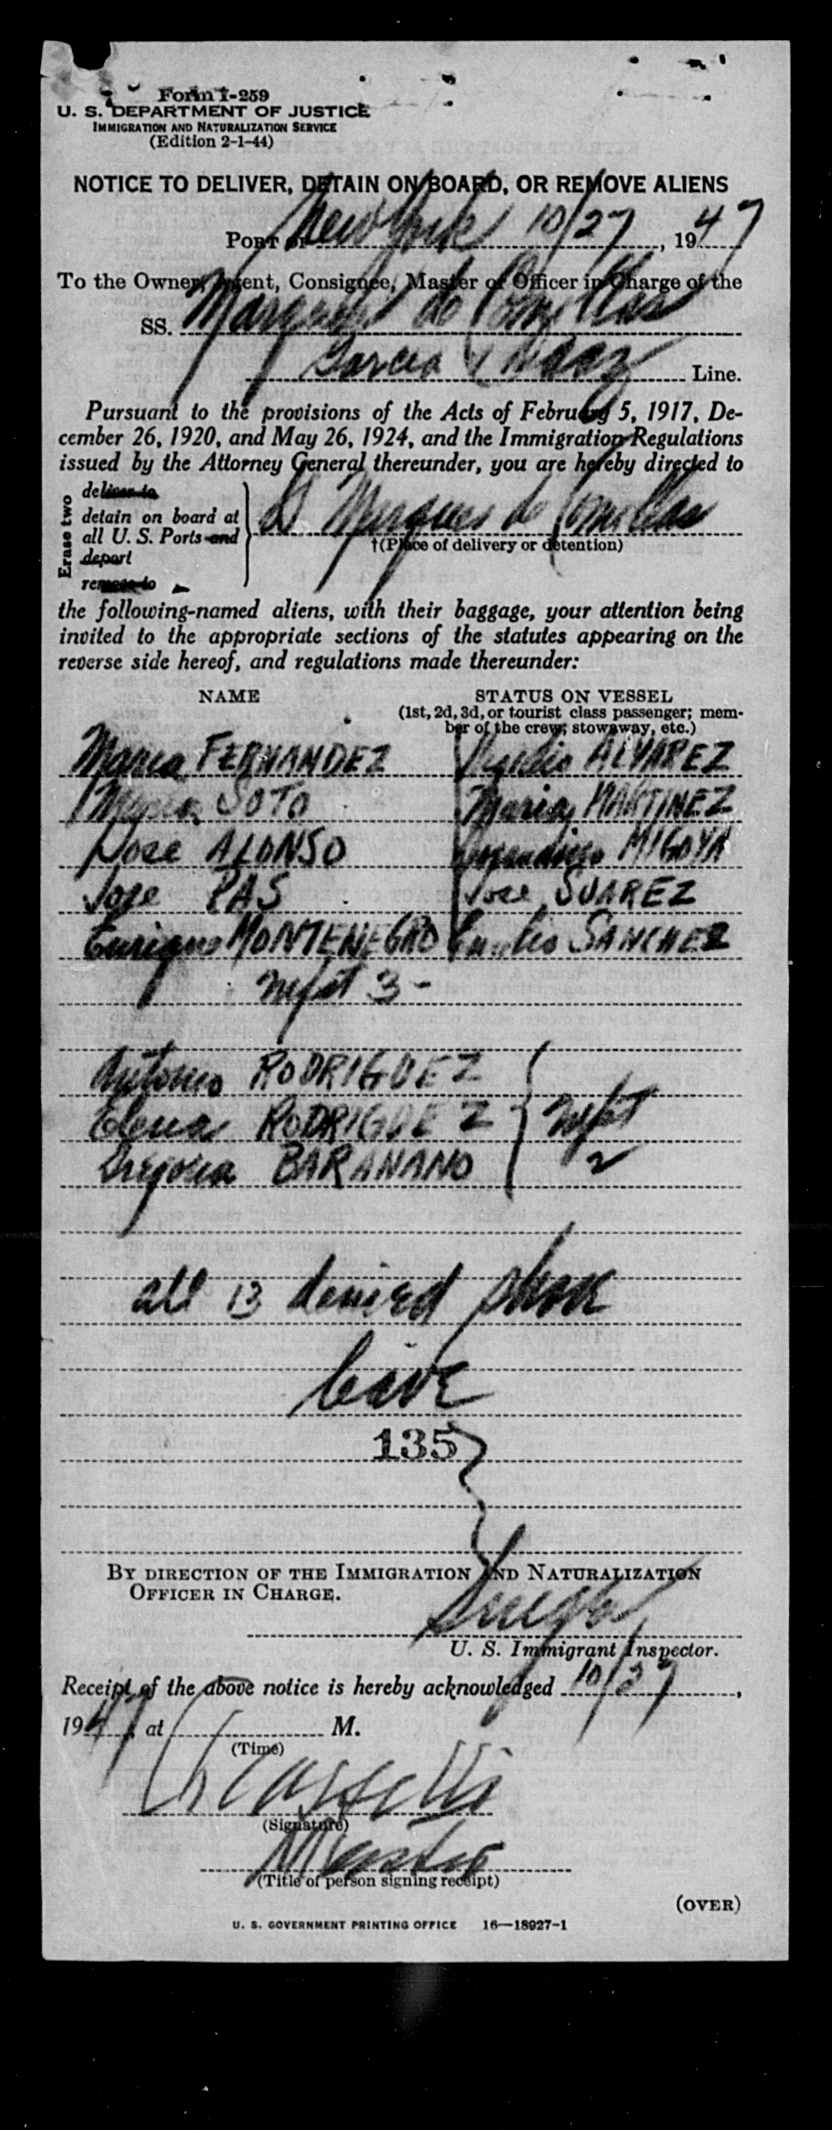 Form I-259
U. S. DEPARTMENT OF JUSTICE
IMMIGRATION AND NATURALIZATION SERVICE
(Edition 2-1-44)
NOTICE TO DELIVER, DETAIN ON BOARD, OR REMOVE ALIENS
PORT OF New York 10/27, 1947
To the Owner, Agent, Consignee, Master or Officer in Charge of the
SS. Marques de Comillas
Garcia & Diaz Line.
Pursuant to the provisions of the Acts of February 5, 1917, De-
cember 26, 1920, and May 26, 1924, and the Immigration Regulations
issued by the Attorney General thereunder, you are hereby directed to
Erase two
deliver to
detain on board at
all U. S. Ports and
deport
remove to
Marques de Comillas
†(Place of delivery or detention)
the following-named aliens, with their baggage, your attention being
invited to the appropriate sections of the statutes appearing on the
reverse side hereof, and regulations made thereunder:
NAME STATUS ON VESSEL
(1st, 2d, 3d, or tourist class passenger; mem-
ber of the crew; stowaway, etc.)
Maria FERNANDEZ ALVAREZ
Maria SOTO Maria MARTINEZ
Jose ALONSO MIGOYA
Jose PAS Jose SUAREZ
Enrique MONTENEGRO Emilio SANCHEZ
3-
Antonio RODRIGUEZ
Elena RODRIGUEZ
Gregoria BARANANO
2
all 13 denied shore
leave
135
BY DIRECTION OF THE IMMIGRATION AND NATURALIZATION
OFFICER IN CHARGE.
U. S. Immigrant Inspector.
Receipt of the above notice is hereby acknowledged 10/27,
1947, at M.
(Time)
(Signature)
Master
(Title of person signing receipt)
(OVER)
U. S. GOVERNMENT PRINTING OFFICE 16—18927-1